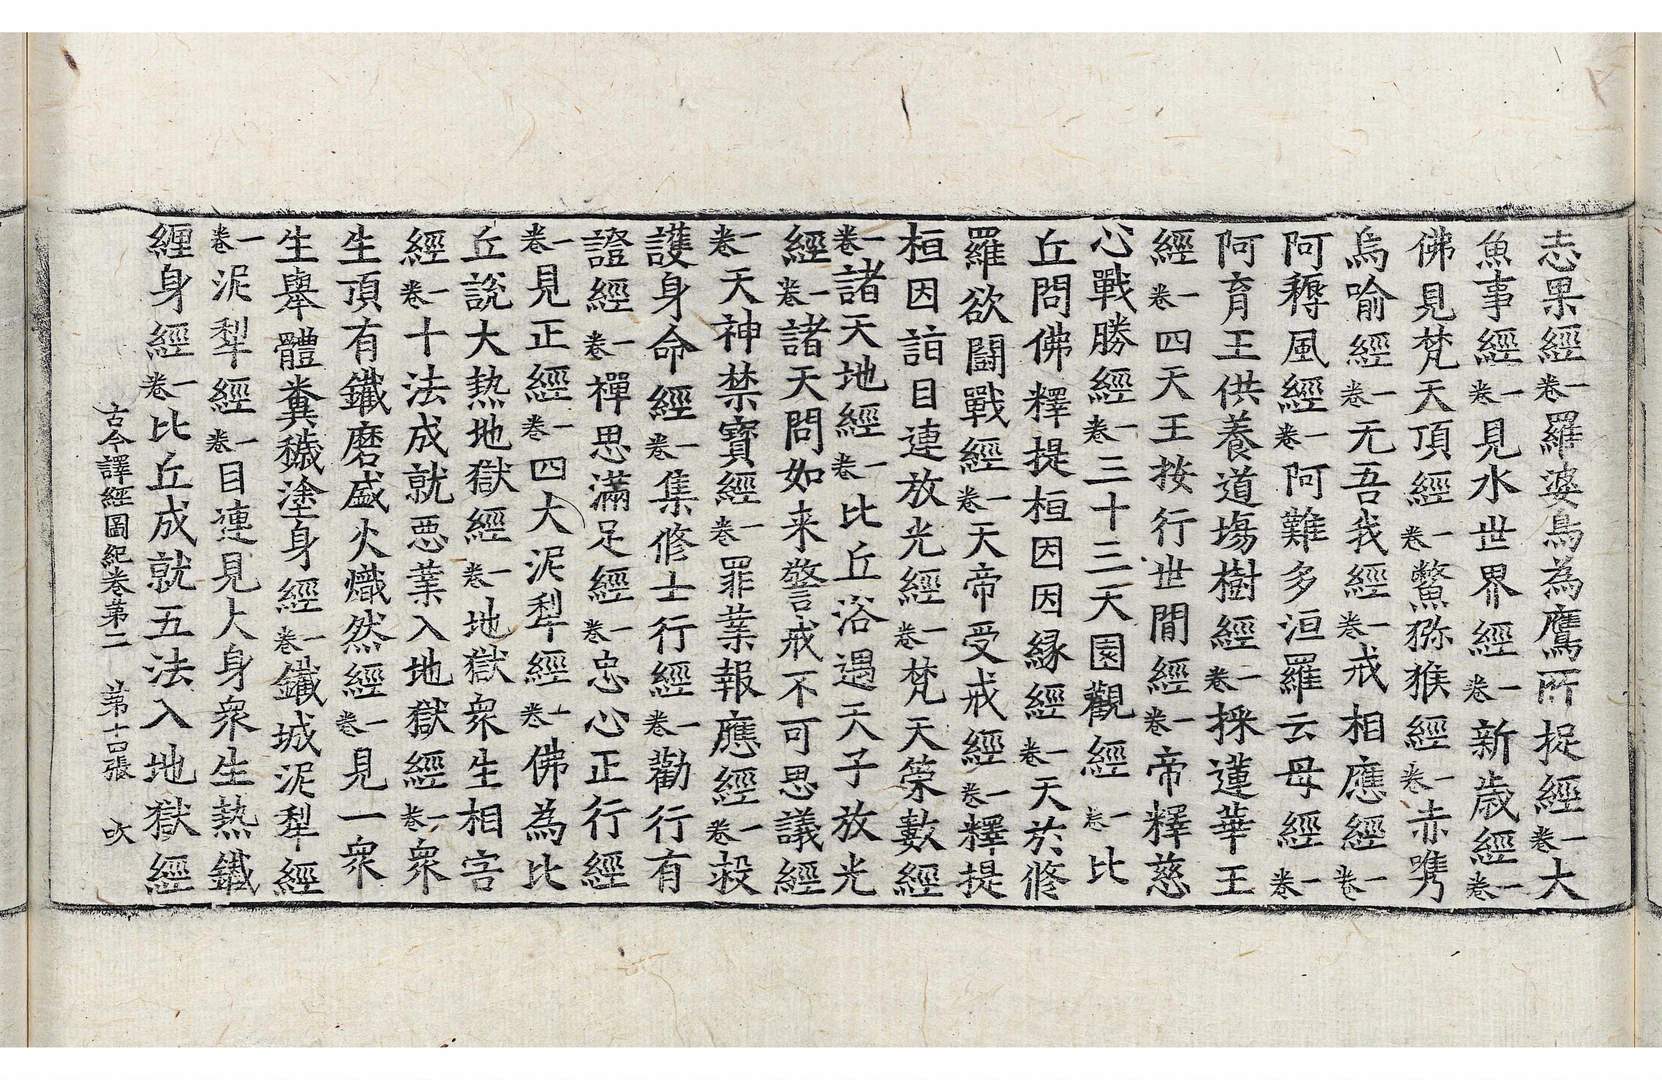 恚果經一卷羅婆鳥為鷹所捉經一卷大
魚事經一卷見水世界經一卷新歲經一卷
佛見梵天頂經一卷鱉猕猴經一卷赤嘴
烏喻經一卷无吾我經一卷戒相應經一卷
阿耨風經一卷阿難多洹羅云母經一卷
阿育王供養道塲樹經一卷採蓮華王
經一卷四天王按行世間經一卷帝釋慈
心戰勝經一卷三十三天園觀經一卷比
丘問佛釋提桓因因緣經一卷天於修
羅欲鬪戰經一卷天帝受戒經一卷釋提
桓因詣目連放光經一卷梵天䇿數經
一卷諸天地經一卷比丘浴遇天子放光
經一卷諸天問如来警戒不可思議經
一卷天神禁寶經一卷罪業報應經一卷殺
護身命經一卷集修士行經一卷勸行有
證經一卷禪思滿足經一卷忠心正行經
一卷見正經一卷四大泥犁經一卷佛為比
丘說大熱地獄經一卷地獄衆生相害
經一卷十法成就惡業入地獄經一卷衆
生頂有鐵磨盛火熾然經一卷見一衆
生舉體糞穢塗身經一卷鐵城泥犁經
一卷泥犁經一卷目連見大身衆生熱鐵
纏身經一卷比丘成就五法入地獄經
古今譯經圖紀卷第二 第十口張 吹